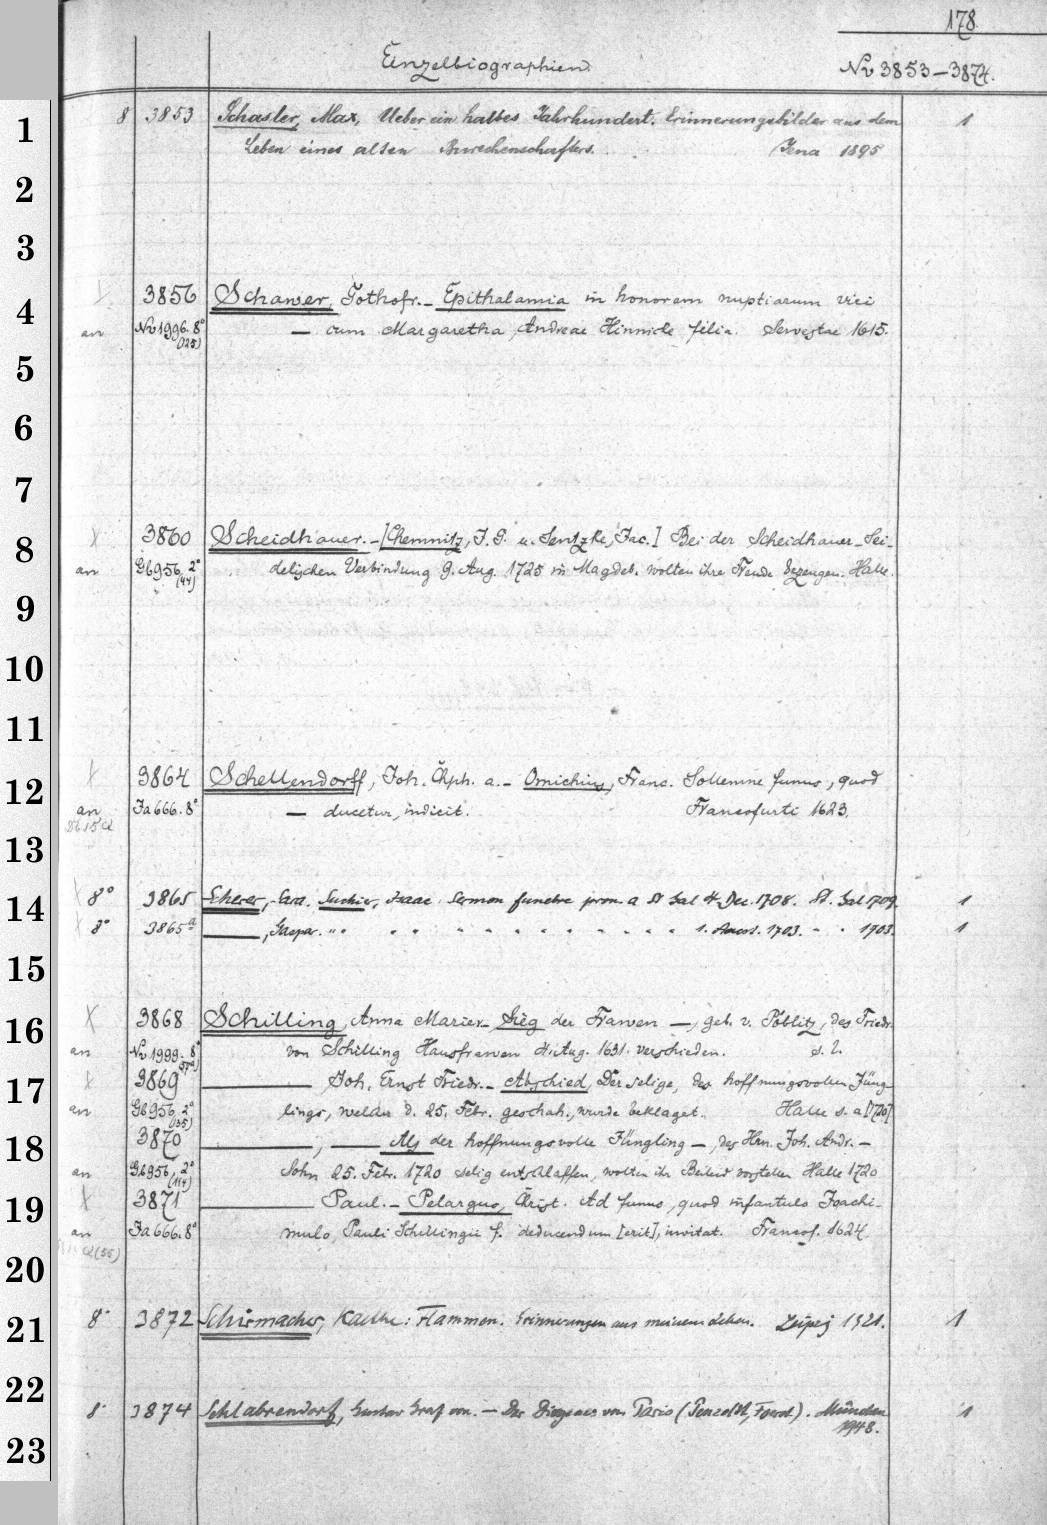 178.
Einzelbiographien.
Nr 3853-3874.
1
8 3853 Schasler, Max, Ueber ein halbes Jahrhundert. Erinnerungsbilder aus dem 1
Leben eines alten Burschenschafters. Jena 1895
2
3
4
3856 Schawer, Gothofr. - Epithalamia in honorem nuptiarum viri
an Nv 1996. 8° (125) — cum Margaretha, Andreae Hinnicke filia. Servestae 1615.
5
6
7
8
3860 Scheidhauer. - [Chemnitz, J. G. u. Jentzke, Jac.] Bei der Scheidhauer-Sei-
an Gb 956, 2° (44) delischen Verbindung 9. Aug. 1725 in Magdeb. wolten ihre Freude bezeugen. Halle.
9
10
11
12
3864 Schellendorff, Joh. Chph. a. - Omichius, Franc. Sollemne funus, quod
an Ja 666. 8° — ducetur, indicit. Francofurti 1623.
13
14
8° 3865 Scherer, Sara. Suchier, Isaac. Sermon funebre pron. a St Gal 4. Dec. 1708. St. Gal 1709. 1
8° 3865a —, Gaspar. 1. Aout. 1703. 1903. 1
15
16
3868 Schilling, Anna Marier. - Sieg der Frawen —, geb. v. Pöblitz, des Friedr.
an Nv 1999. 8° von Schilling Hausfrawen Aug. 1631. verschieden. s. l.
17
3869 — Joh. Ernst Friedr. - Abschied, Der selige, des hoffnungsvollen Jüng-
an Gb 956, 2° (35) lings, welcher d. 25. Febr. geschah, wurde beklaget. Halle s. a [1720]
18
3870 —, — Als der hoffnungsvolle Jüngling —, des Hrn. Joh. Andr. —
an Gb 956, 2° (114) Sohn 25. Febr. 1720 selig entschlaffen, wolten ihr Beileid vorstellen Halle 1720
19
3871 — Paul. - Pelargus, Christ. Ad funus, quod infantulo Joachi-
an Ja 666. 8° mulo, Pauli Schillingii f. deducendum [erit], invitat. Francof. 1624.
20
21
8° 3872 Schirmacher, Kaethe: Flammen. Erinnerungen aus meinem Leben. Leipzig 1921. 1
22
8° 3874 Schlabrendorf, Gustav Graf von. - Der Diogenes von Paris (Penzoldt, Ferd.). München 1
1948.
23